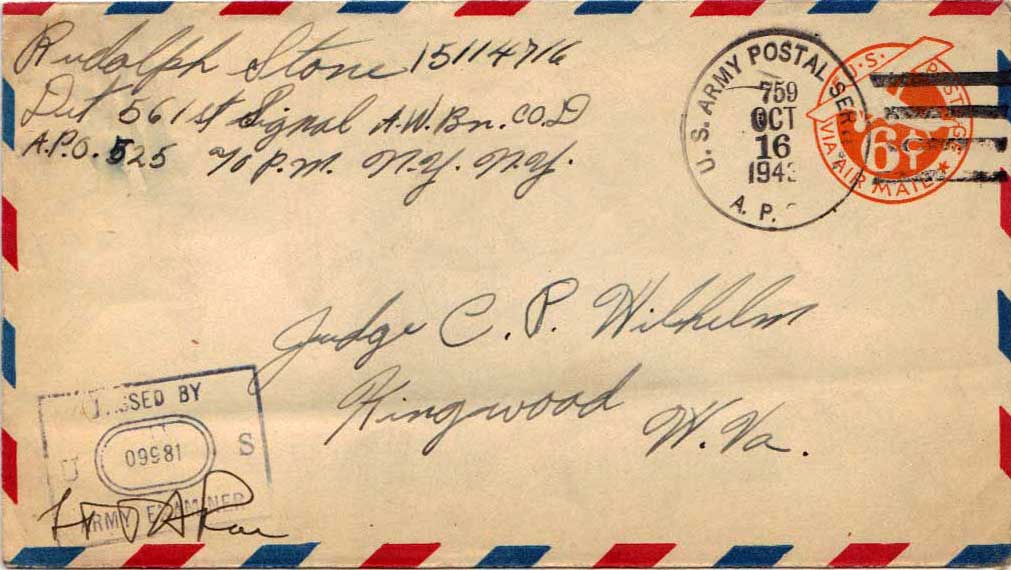 Rudolph Stone 15114716
Det 561st Signal A.W.Bn. CO.D
A.P.O. 525 c/o P.M. N.Y. N.Y.
U.S. ARMY POSTAL
759
OCT
16
A. P.
U.S. POSTAGE
6¢
VIA AIR MAIL
Judge C. P. Wilhelm
Kingwood
W.Va.
BY
U S
ARMY EXAMINER